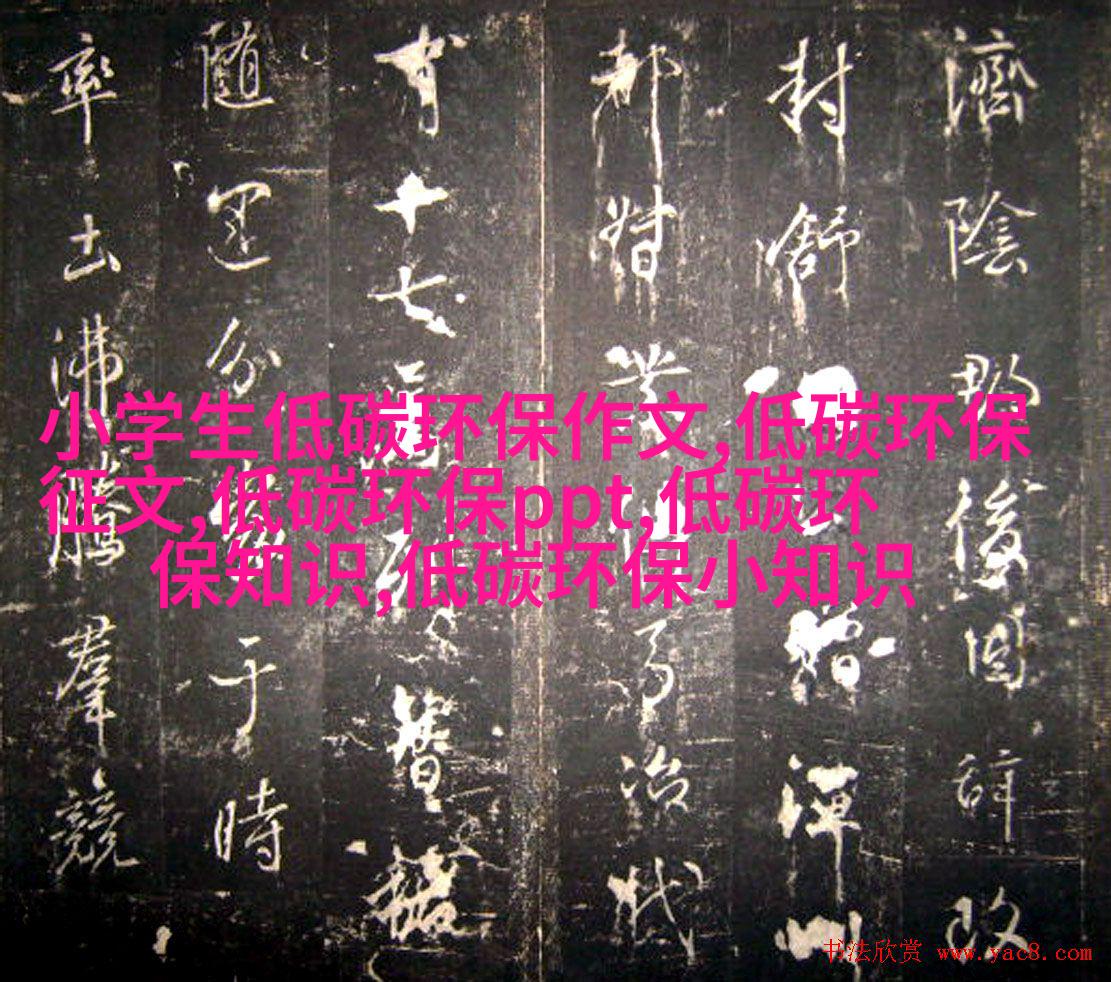 濟陰郡後因辭改
封舒公贈潭州
都督冶
有十七
随分于時
率土沸騰羣競
小学生低碳环保作文,低碳环保
征文,低碳环保ppt,低碳环
保知识,低碳环保小知识
书法欣赏 www.yac8.com